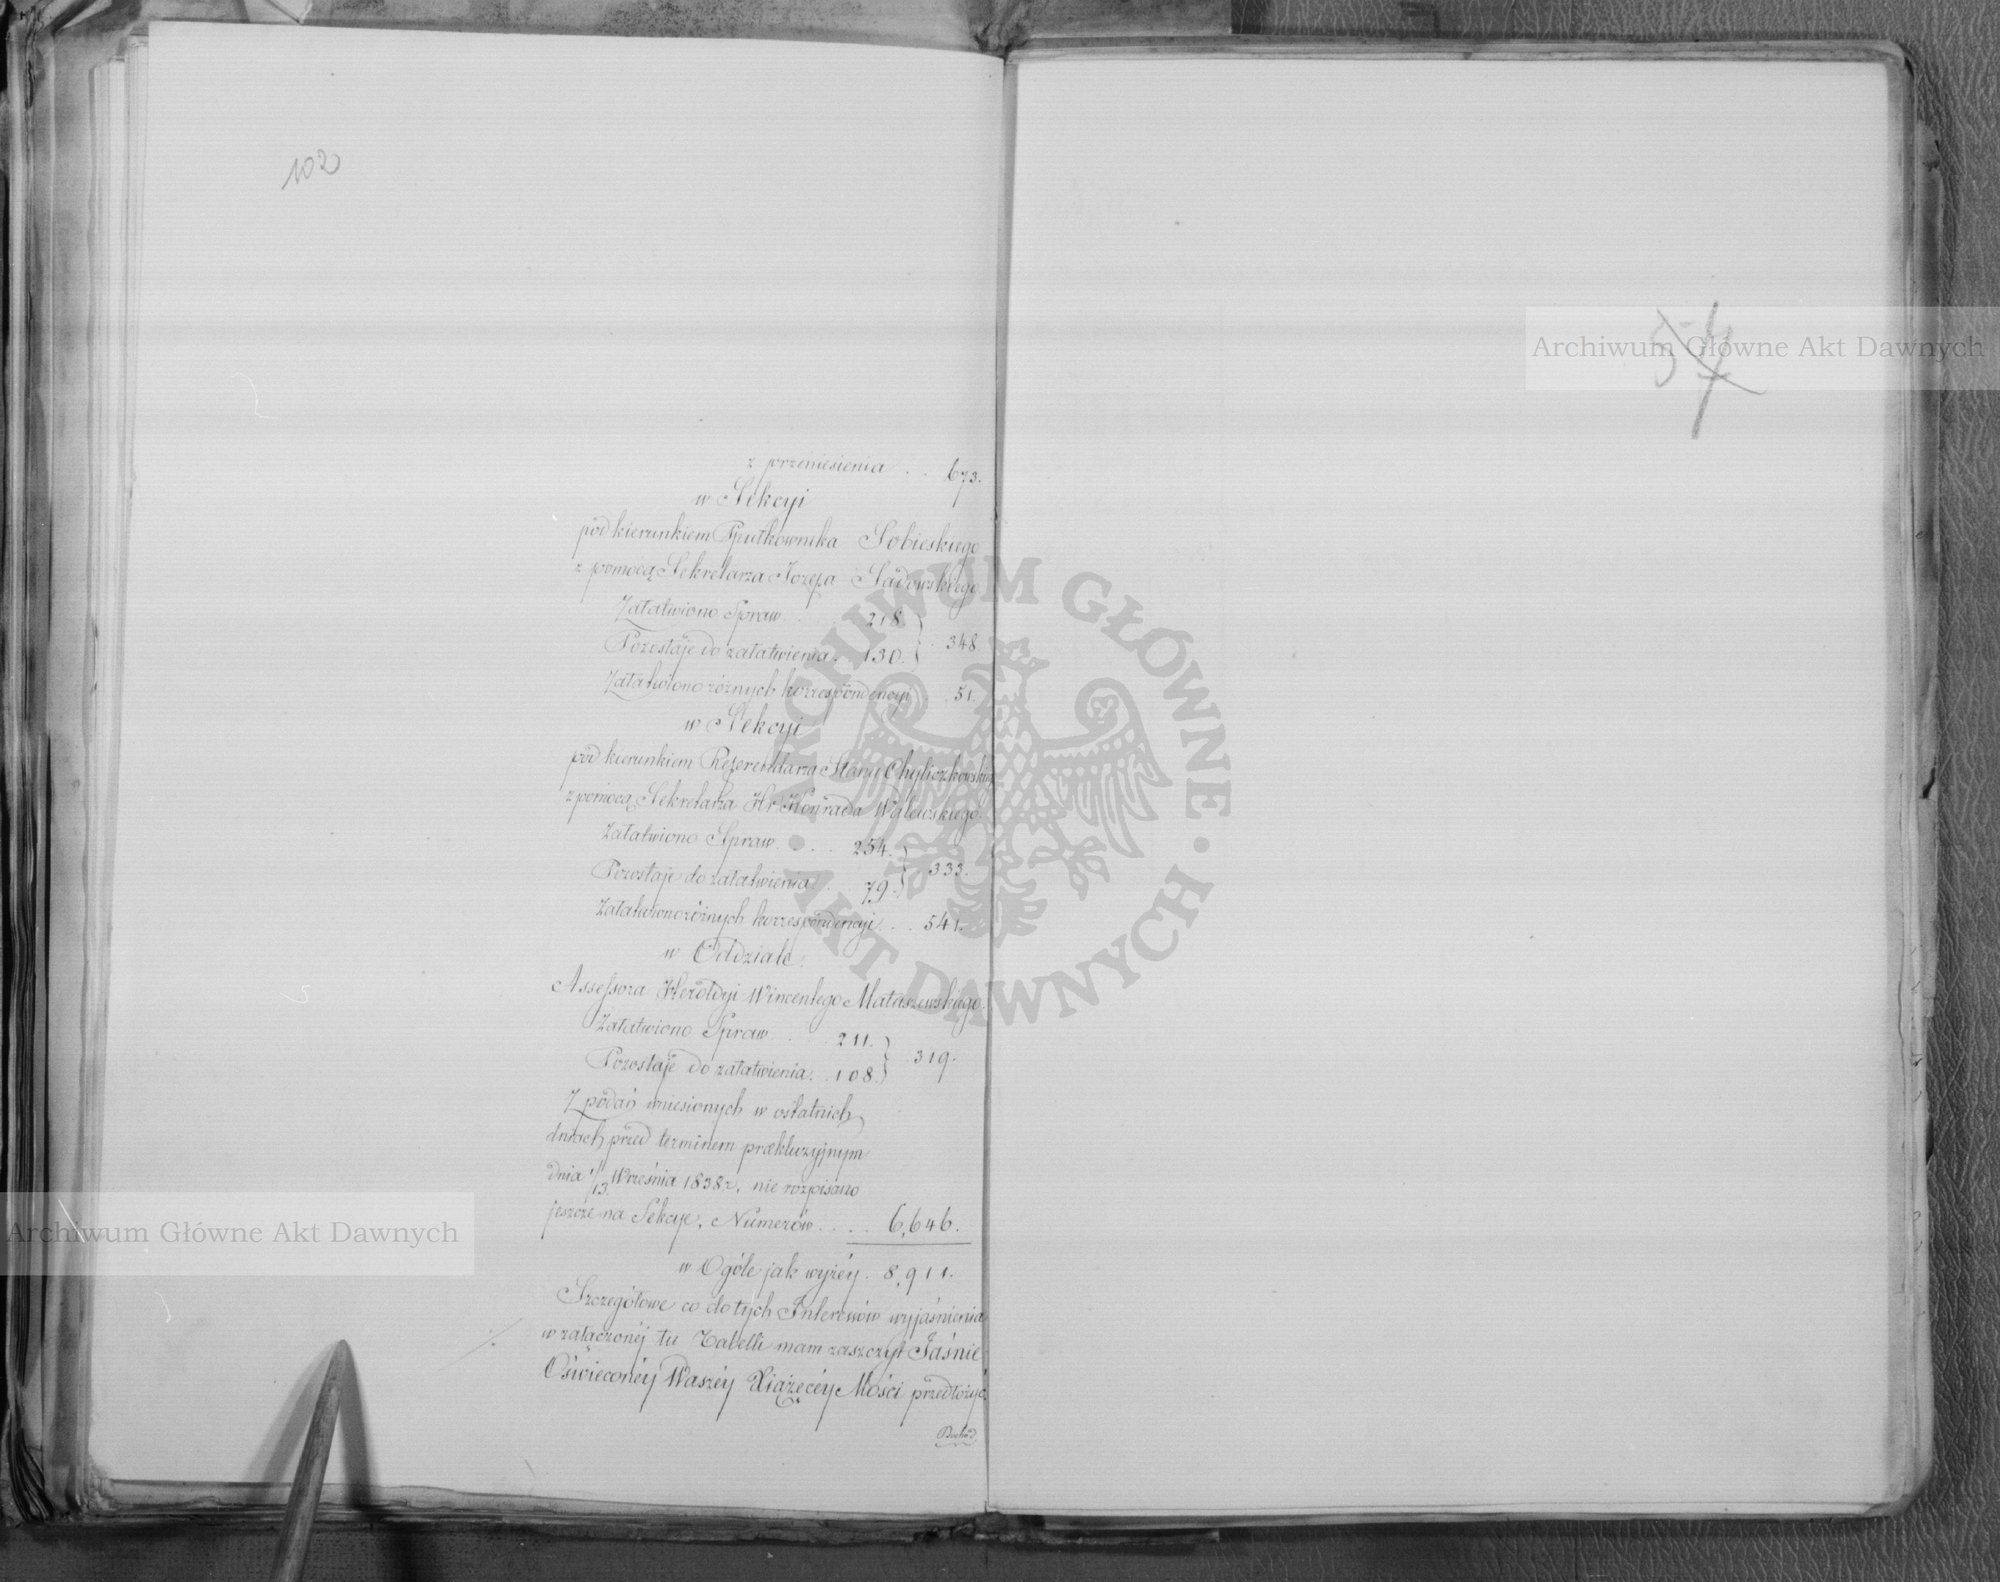 102
z przeniesienia . . 673.
w Sekcyi
pod kierunkiem Pułkownika Sobieskiego
z pomocą Sekretarza Jozefa Sadowskiego
Załatwiono Spraw . . 218. } . 348
Pozostaje do załatwienia . 130. }
Załatwiono różnych korrespondencyi . 51.
w Sekcyi
pod kierunkiem Referendarza Stanu Chyliczkowskiego
z pomocą Sekretarza Hr. Konrada Walewskiego
Załatwiono Spraw . . . 254. } . 333.
Pozostaje do załatwienia . 79. }
Załatwiono różnych korrespondencyi . . 541.
w Oddziale
Assessora Heroldyi Wincentego Mataszewskiego.
Załatwiono Spraw . . . 211. } . 319.
Pozostaje do załatwienia . . 108. }
Z podań wniesionych w ostatnich
dniach przed terminem prekluzyjnym
dnia 1/13. Września 1838 r. nie rozpisano
jeszcze na Sekcye, Numerów . . . . 6,646.
w Ogóle jak wyżéy . 8,911.
Szczegółowe co do tych Interessów wyjaśnienia
w załączonéj tu Tabelli mam zaszczyt Jaśnie
Oświeconéy Waszéy Xiążęcéy Mości przedłożyć.
Archiwum Główne Akt Dawnych
Archiwum Główne Akt Dawnych
ARCHIWUM GŁÓWNE · AKT DAWNYCH ·